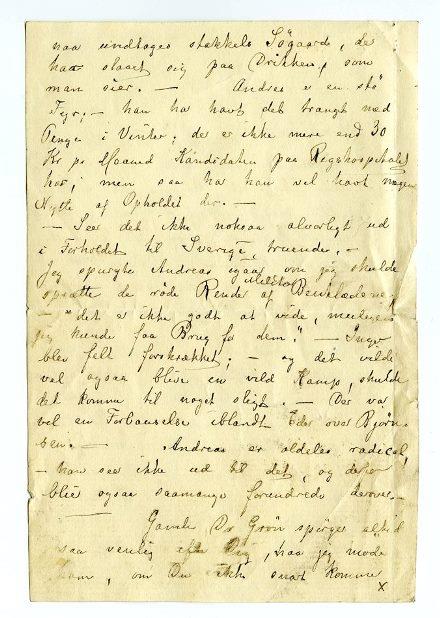 maa undtages stakkels Søgaard, der
har slaaet sig paa Drikken, som
man sier. — Andreas er en stø
Fyr, — han ha havt det trangt med
Penge i Vinter; der er ikke mere end 30
Kr pr Maaned Kandidaten paa Rigshospitalet
har; men saa ha han vel havt megen
Nytte af Opholdet der. —
— Seer det ikke noksaa alvorligt ud
i Forholdet til Sverige, truende. —
Jeg spurgte Andreas igaar om jeg skulde
sprætte de røde Render af Benklæderne,
— "det er ikke godt at vide,
jeg kunde faa Brug for dem." — Inga
blev felt forskrækket; — og det vilde
vel ogsaa blive en vild Kamp, skulde
det komme til noget sligt. — Der var
vel en Forbauselse iblandt Eder over Bjørn
— Andreas er aldeles radical,
— han seer ikke ud til det, og derfor
blir ogsaa saamange forundrede derover. —
Gamle Dr Grøn spørger altid
saa venlig efter Dig, naar jeg møder
ham, om Du ikke snart kommer
x